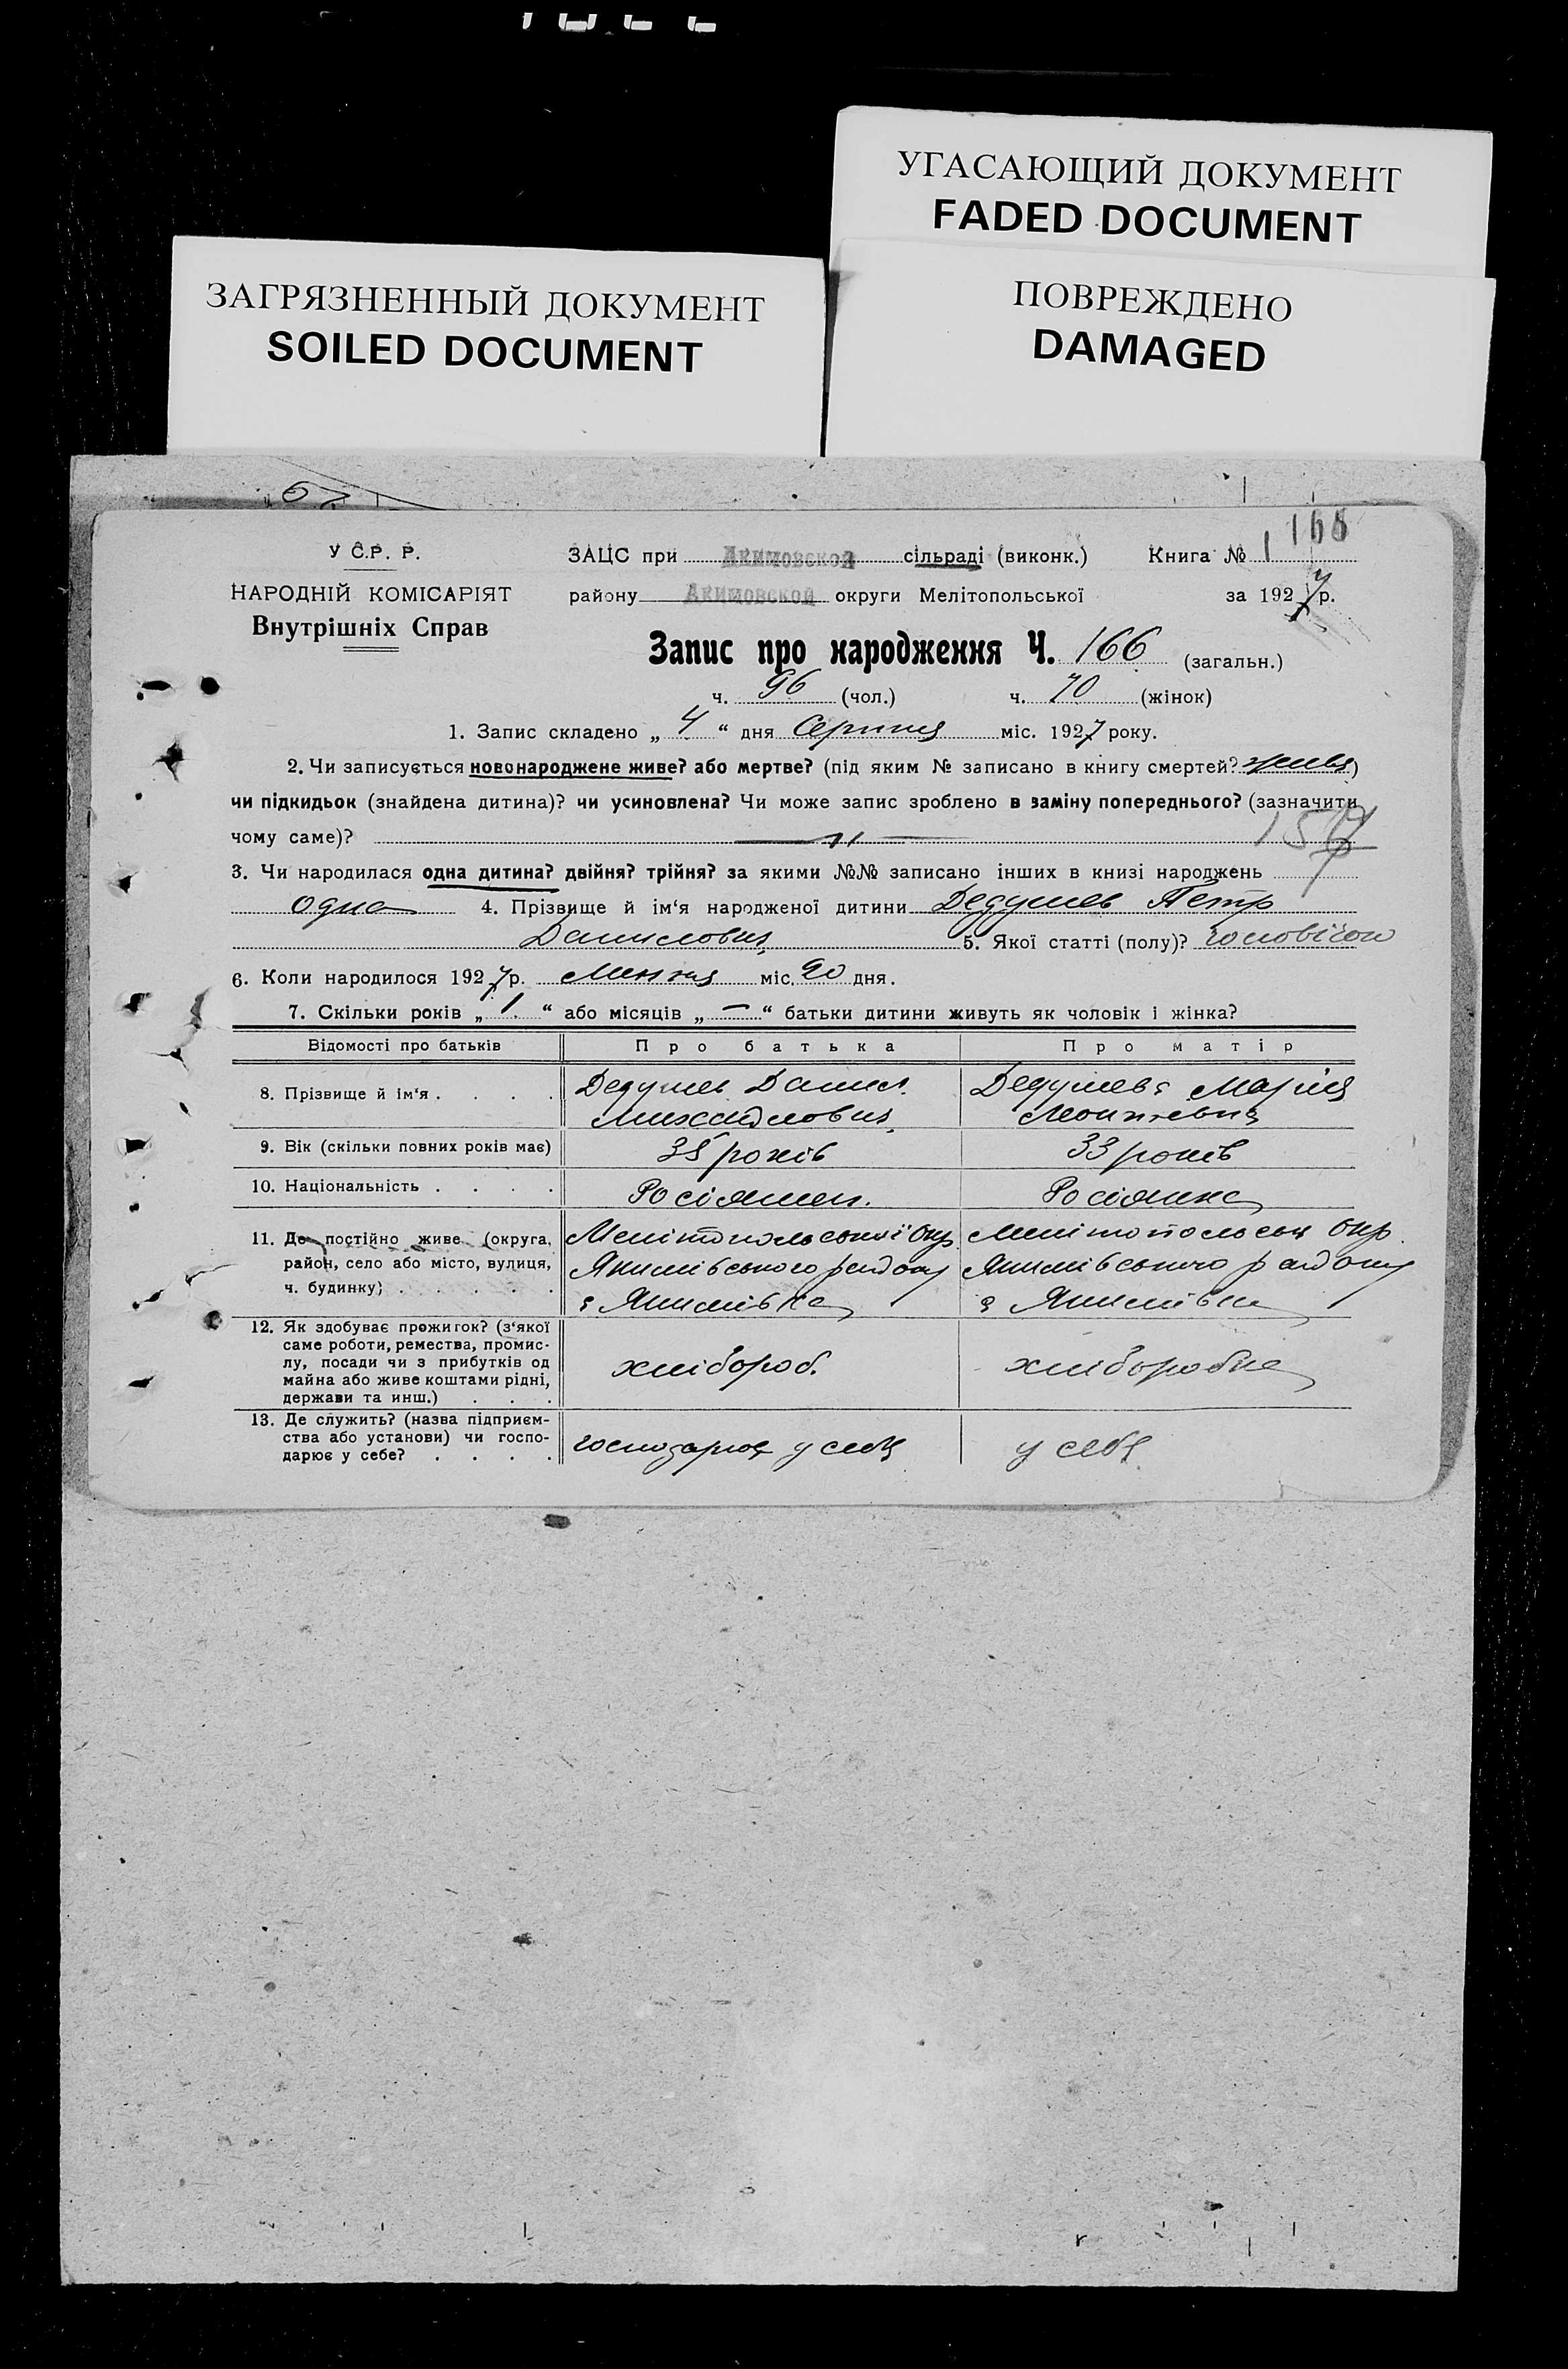 УГАСАЮЩИЙ ДОКУМЕНТ
FADED DOCUMENT
ЗАГРЯЗНЕННЫЙ ДОКУМЕНТ
SOILED DOCUMENT
ПОВРЕЖДЕНО
DAMAGED
У С.Р. Р.
НАРОДНІЙ КОМІСАРІЯТ
Внутрішніх Справ
ЗАЦС при Акимовской сільраді (виконк.) Книга № 1
району Акимовской округи Мелітопольської за 1927 р.
Запис про народження Ч. 166 (загальн.)
ч. 96 (чол.) ч. 70 (жінок)
1. Запис складено „ 4 “ дня Серпня міс. 1927 року.
2. Чи записується новонароджене живе? або мертве? (під яким № записано в книгу смертей? живе)
чи підкидьок (знайдена дитина)? чи усиновлена? Чи може запис зроблено в заміну попереднього? (зазначити
чому саме)?
3. Чи народилася одна дитина? двійня? трійня? за якими №№ записано інших в книзі народжень
одна 4. Прізвище й ім‘я народженої дитини Дедушев Петр
Данилович 5. Якої статті (полу)?
6. Коли народилося 1927 р. Липня міс. 20 дня.
7. Скільки років „ 1 “ або місяців „ — “ батьки дитини живуть як чоловік і жінка?
Відомості про батьків Про батька Про матір
8. Прізвище й ім‘я . . . . Дедушев Данил Дедушева Марія
Михайлович
9. Вік (скільки повних років має) 35 років 33 років
10. Національність . . . . Росіянин. Росіянка
11. Де постійно живе (округа, Мелітопольської Окр. Мелітопольськ Окр.
район, село або місто, вулиця, Якимівського району Якимівського району
ч. будинку) . . . . . с. Якимівка с Якимівка
12. Як здобуває прожиток? (з‘якої
саме роботи, ремества, промис-
лу, посади чи з прибутків од хлібороб. хлібороб­ка
майна або живе коштами рідні,
держави та инш.) . . .
13. Де служить? (назва підприєм-
ства або установи) чи госпо- господарює у себе у себе
дарює у себе? . . . .